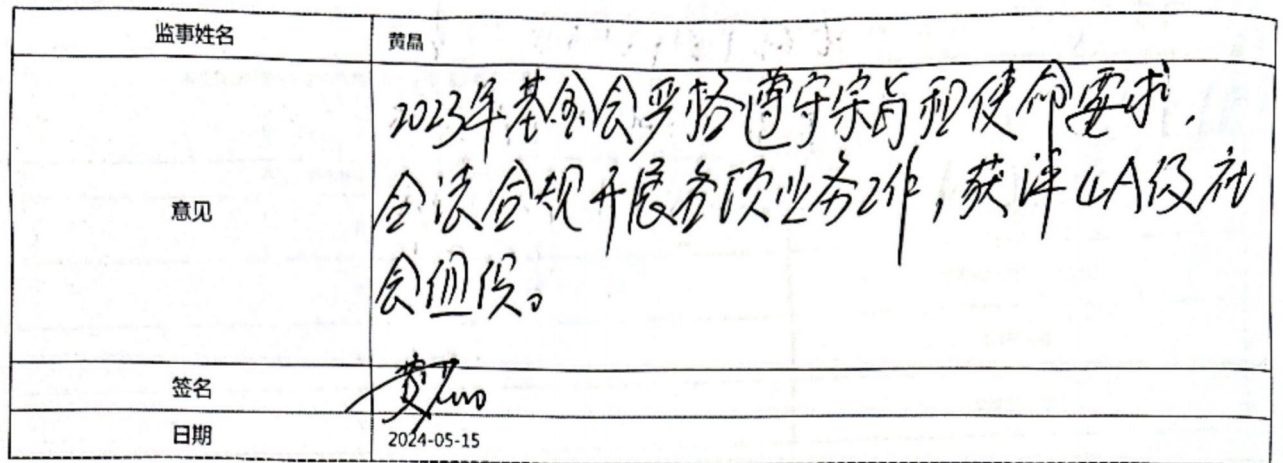 监事姓名 黄晶
2023年基金会严格遵守宗旨和使命要求，
意见 合法合规开展各项业务工作，获评4A级社
会组织。
签名 黄晶
日期 2024-05-15